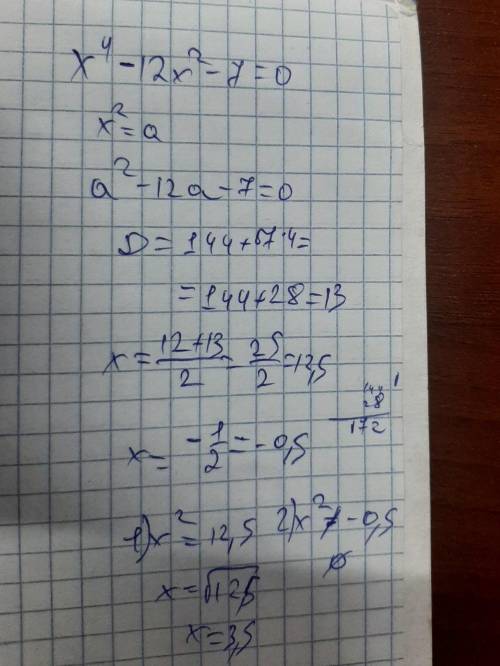 x⁴ - 12x² - 7 = 0
x² = a
a² - 12a - 7 = 0
D = 144 + 7·4 =
= 144 + 28 = 13
x = (12 + 13)/2 = 25/2 = 12,5
28
172
x = -1/2 = -0,5
1) x² = 12,5 2) x² ≠ -0,5
x = √12,5 ∅
x = 3,5